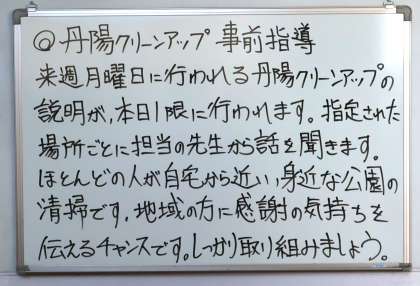 ◎丹陽クリーンアップ 事前指導
来週月曜日に行われる丹陽クリーンアップの
説明が、本日1限に行われます。指定された
場所ごとに担当の先生から話を聞きます。
ほとんどの人が自宅から近い、身近な公園の
清掃です。地域の方に感謝の気持ちを
伝えるチャンスです。しっかり取り組みましょう。